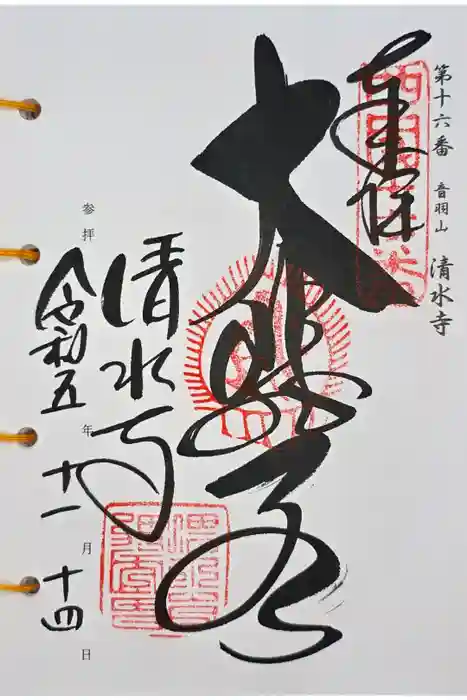 第十六番 音羽山 清水寺
奉拝
大悲閣
清水寺
参拝 令和五年十一月十四日